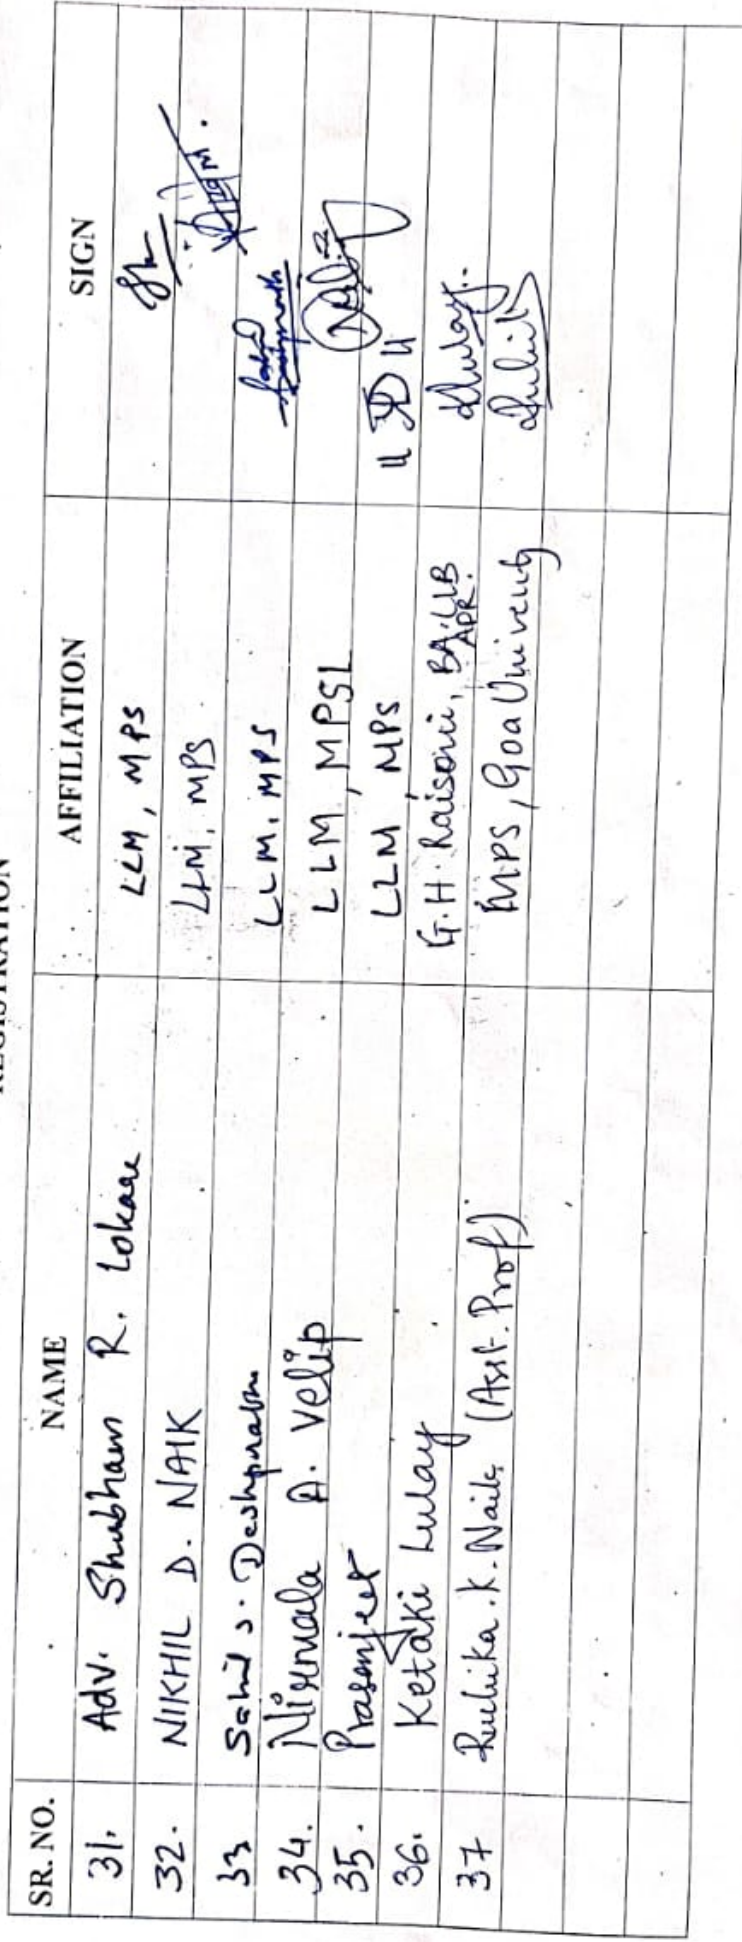 REGISTRATION
SR. NO. NAME AFFILIATION SIGN
31. Adv. Shubham R. Lokare LLM, MPS
32. NIKHIL D. NAIK LLM, MPS
33 Sahil S. Deshprabhu LLM, MPS
34. Nirmala A. Velip LLM, MPSL
35. Prasenjeet LLM, MPS
36. Ketaki Lulay G.H. Raisoni, BA.LLB ADR.
37 Ruhika.K.Naik (Asst. Prof) MPS, Goa University